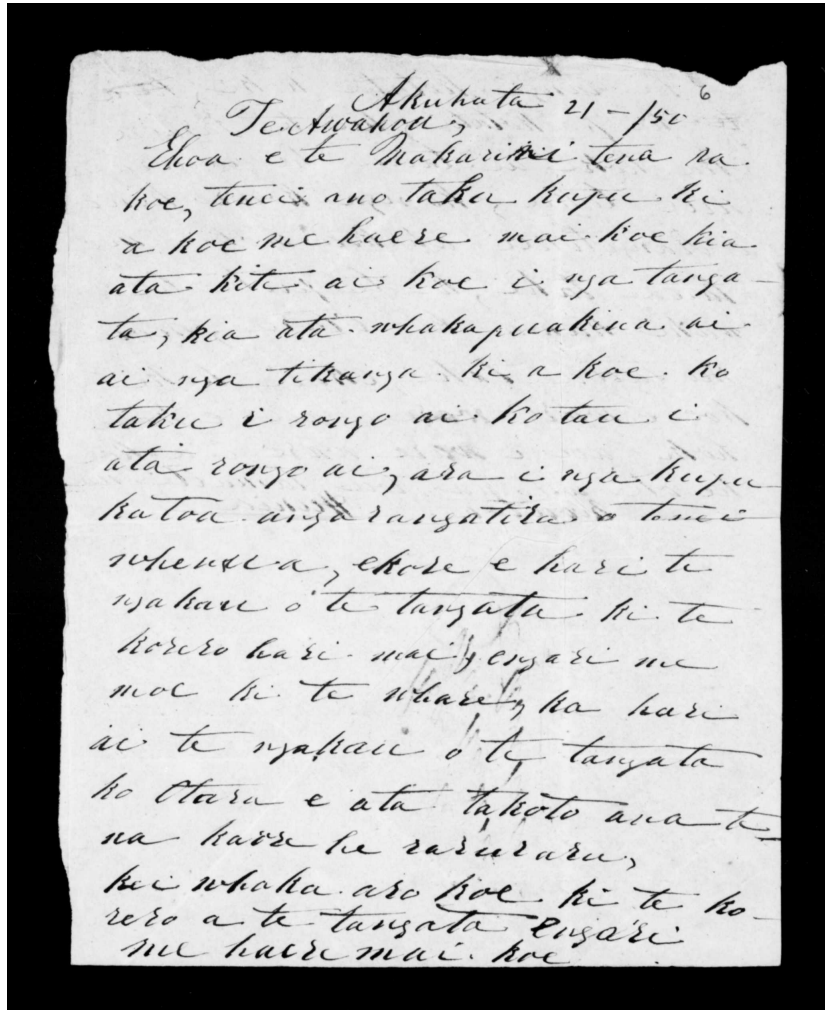 6
Akuhata 21 - /50
Te Awahou,
Ehoa e te Makarini tena ra
koe, tenei ano taku kupu ki
a koe me haere mai koe kia
ata kite ai koe i nga tanga-
ta, kia ata whakapuakina ai
ai nga tikanga ki a koe. ko
taku i rongo ai ko tau i
ata rongo ai, ara i nga kupu
katoa anga rangatira o tenei
whenua, ekore e hari te
ngakau o te tangata ki te
korero hari mai, engari me
moe ki te whare, ka hari
ai te ngakau o te tangata
ko Otara e ata takoto ana te-
na kaore he raruraru,
kei whaka aro koe ki te ko-
rero a te tangata Engari
me haere mai koe